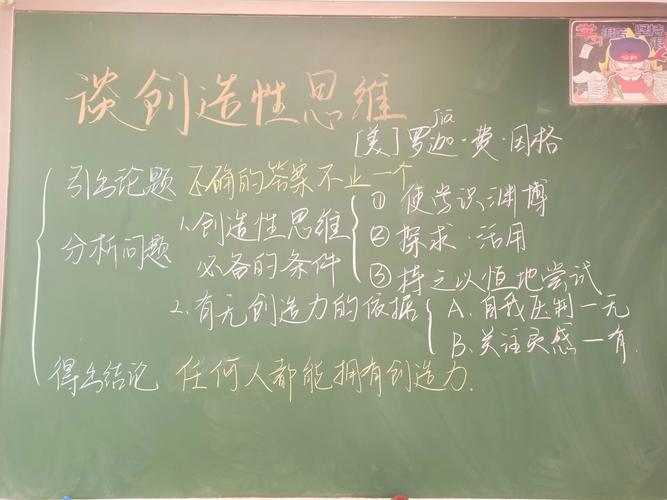 谈创造性思维
jiā
[美]罗迦·费·因格
引出论题 不确的答案不止一个
分析问题
1.创造性思维
必备的条件
① 使学识渊博
② 探求·活用
③ 持之以恒地尝试
2.有无创造力的依据
A.自我压制—无
B.关注灵感—有.
得出结论 任何人都能拥有创造力.
学习
坚持